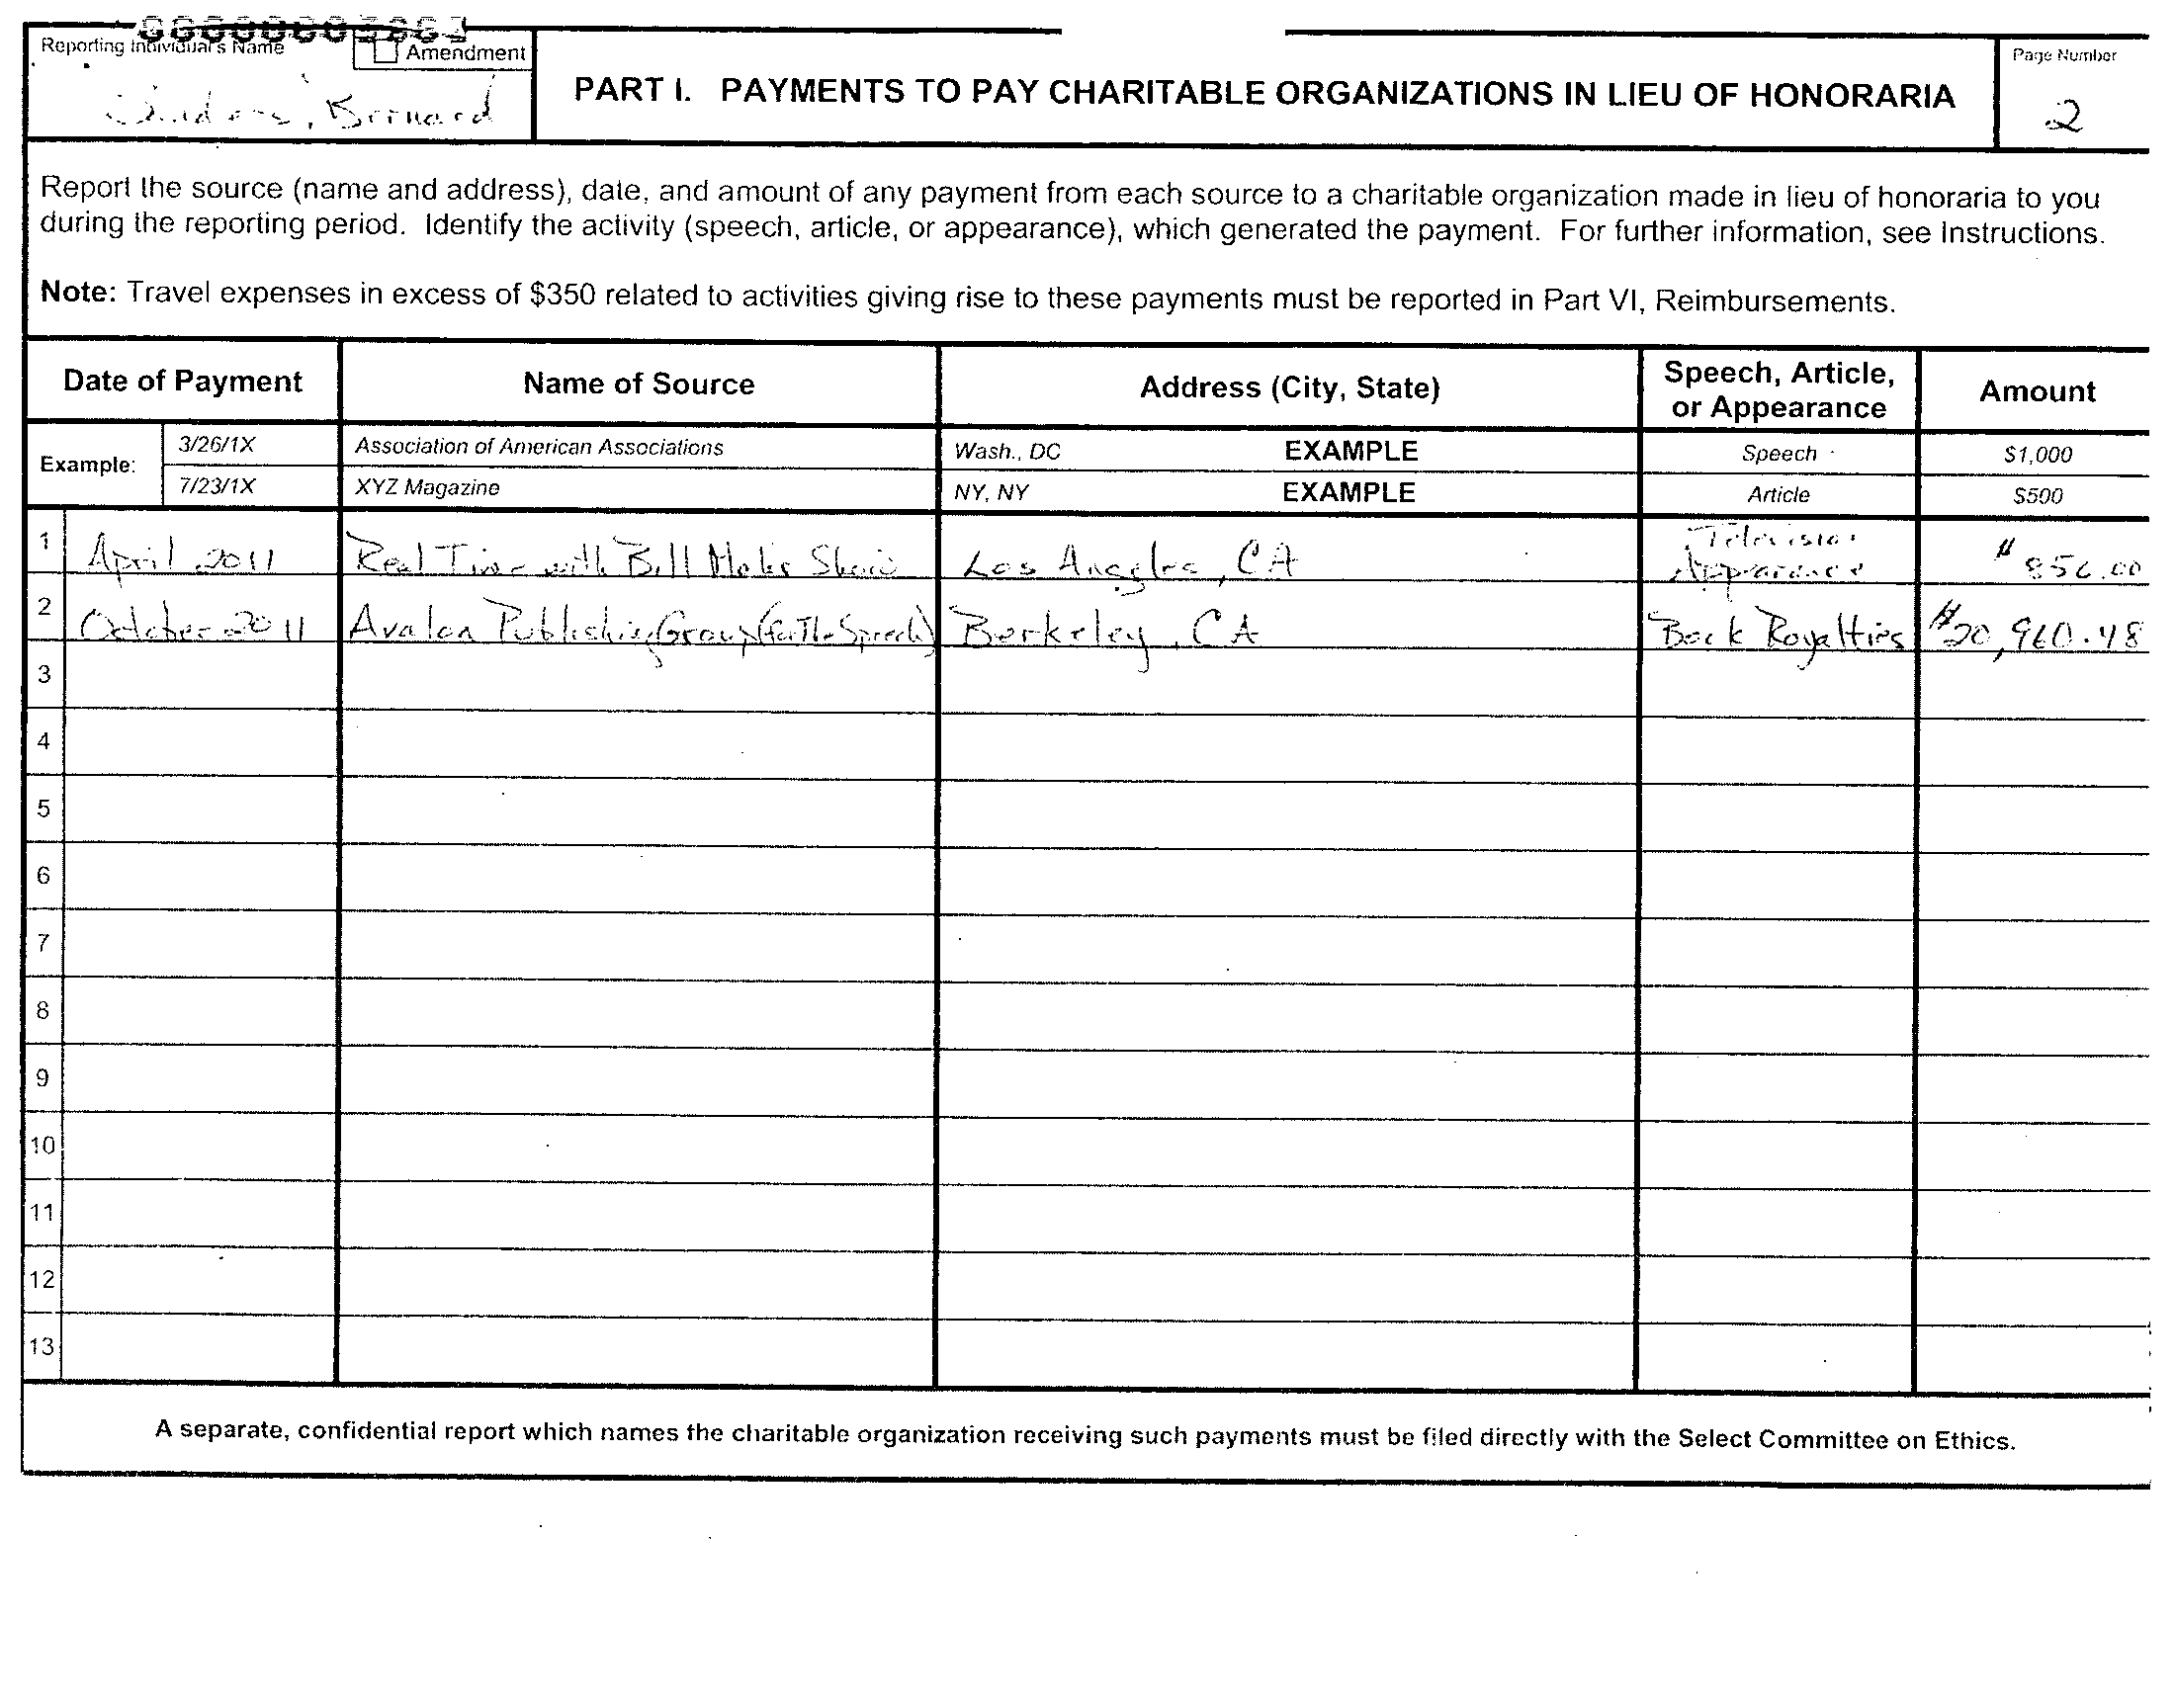 Reporting Individual's Name
Amendment
Sanders, Bernard
PART I. PAYMENTS TO PAY CHARITABLE ORGANIZATIONS IN LIEU OF HONORARIA
Page Number
2
Report the source (name and address), date, and amount of any payment from each source to a charitable organization made in lieu of honoraria to you
during the reporting period. Identify the activity (speech, article, or appearance), which generated the payment. For further information, see Instructions.
Note: Travel expenses in excess of $350 related to activities giving rise to these payments must be reported in Part VI, Reimbursements.
Date of Payment Name of Source Address (City, State) Speech, Article, or Appearance Amount
Example: 3/26/1X Association of American Associations Wash., DC EXAMPLE Speech $1,000
7/23/1X XYZ Magazine NY, NY EXAMPLE Article $500
1 April 2011 Real Time with Bill Maher Show Los Angeles, CA Television Appearance $
2 October 2011 Avalon Publishing Group (for The Speech) Berkeley, CA Book Royalties $20,960.48
3
4
5
6
7
8
9
10
11
12
13
A separate, confidential report which names the charitable organization receiving such payments must be filed directly with the Select Committee on Ethics.